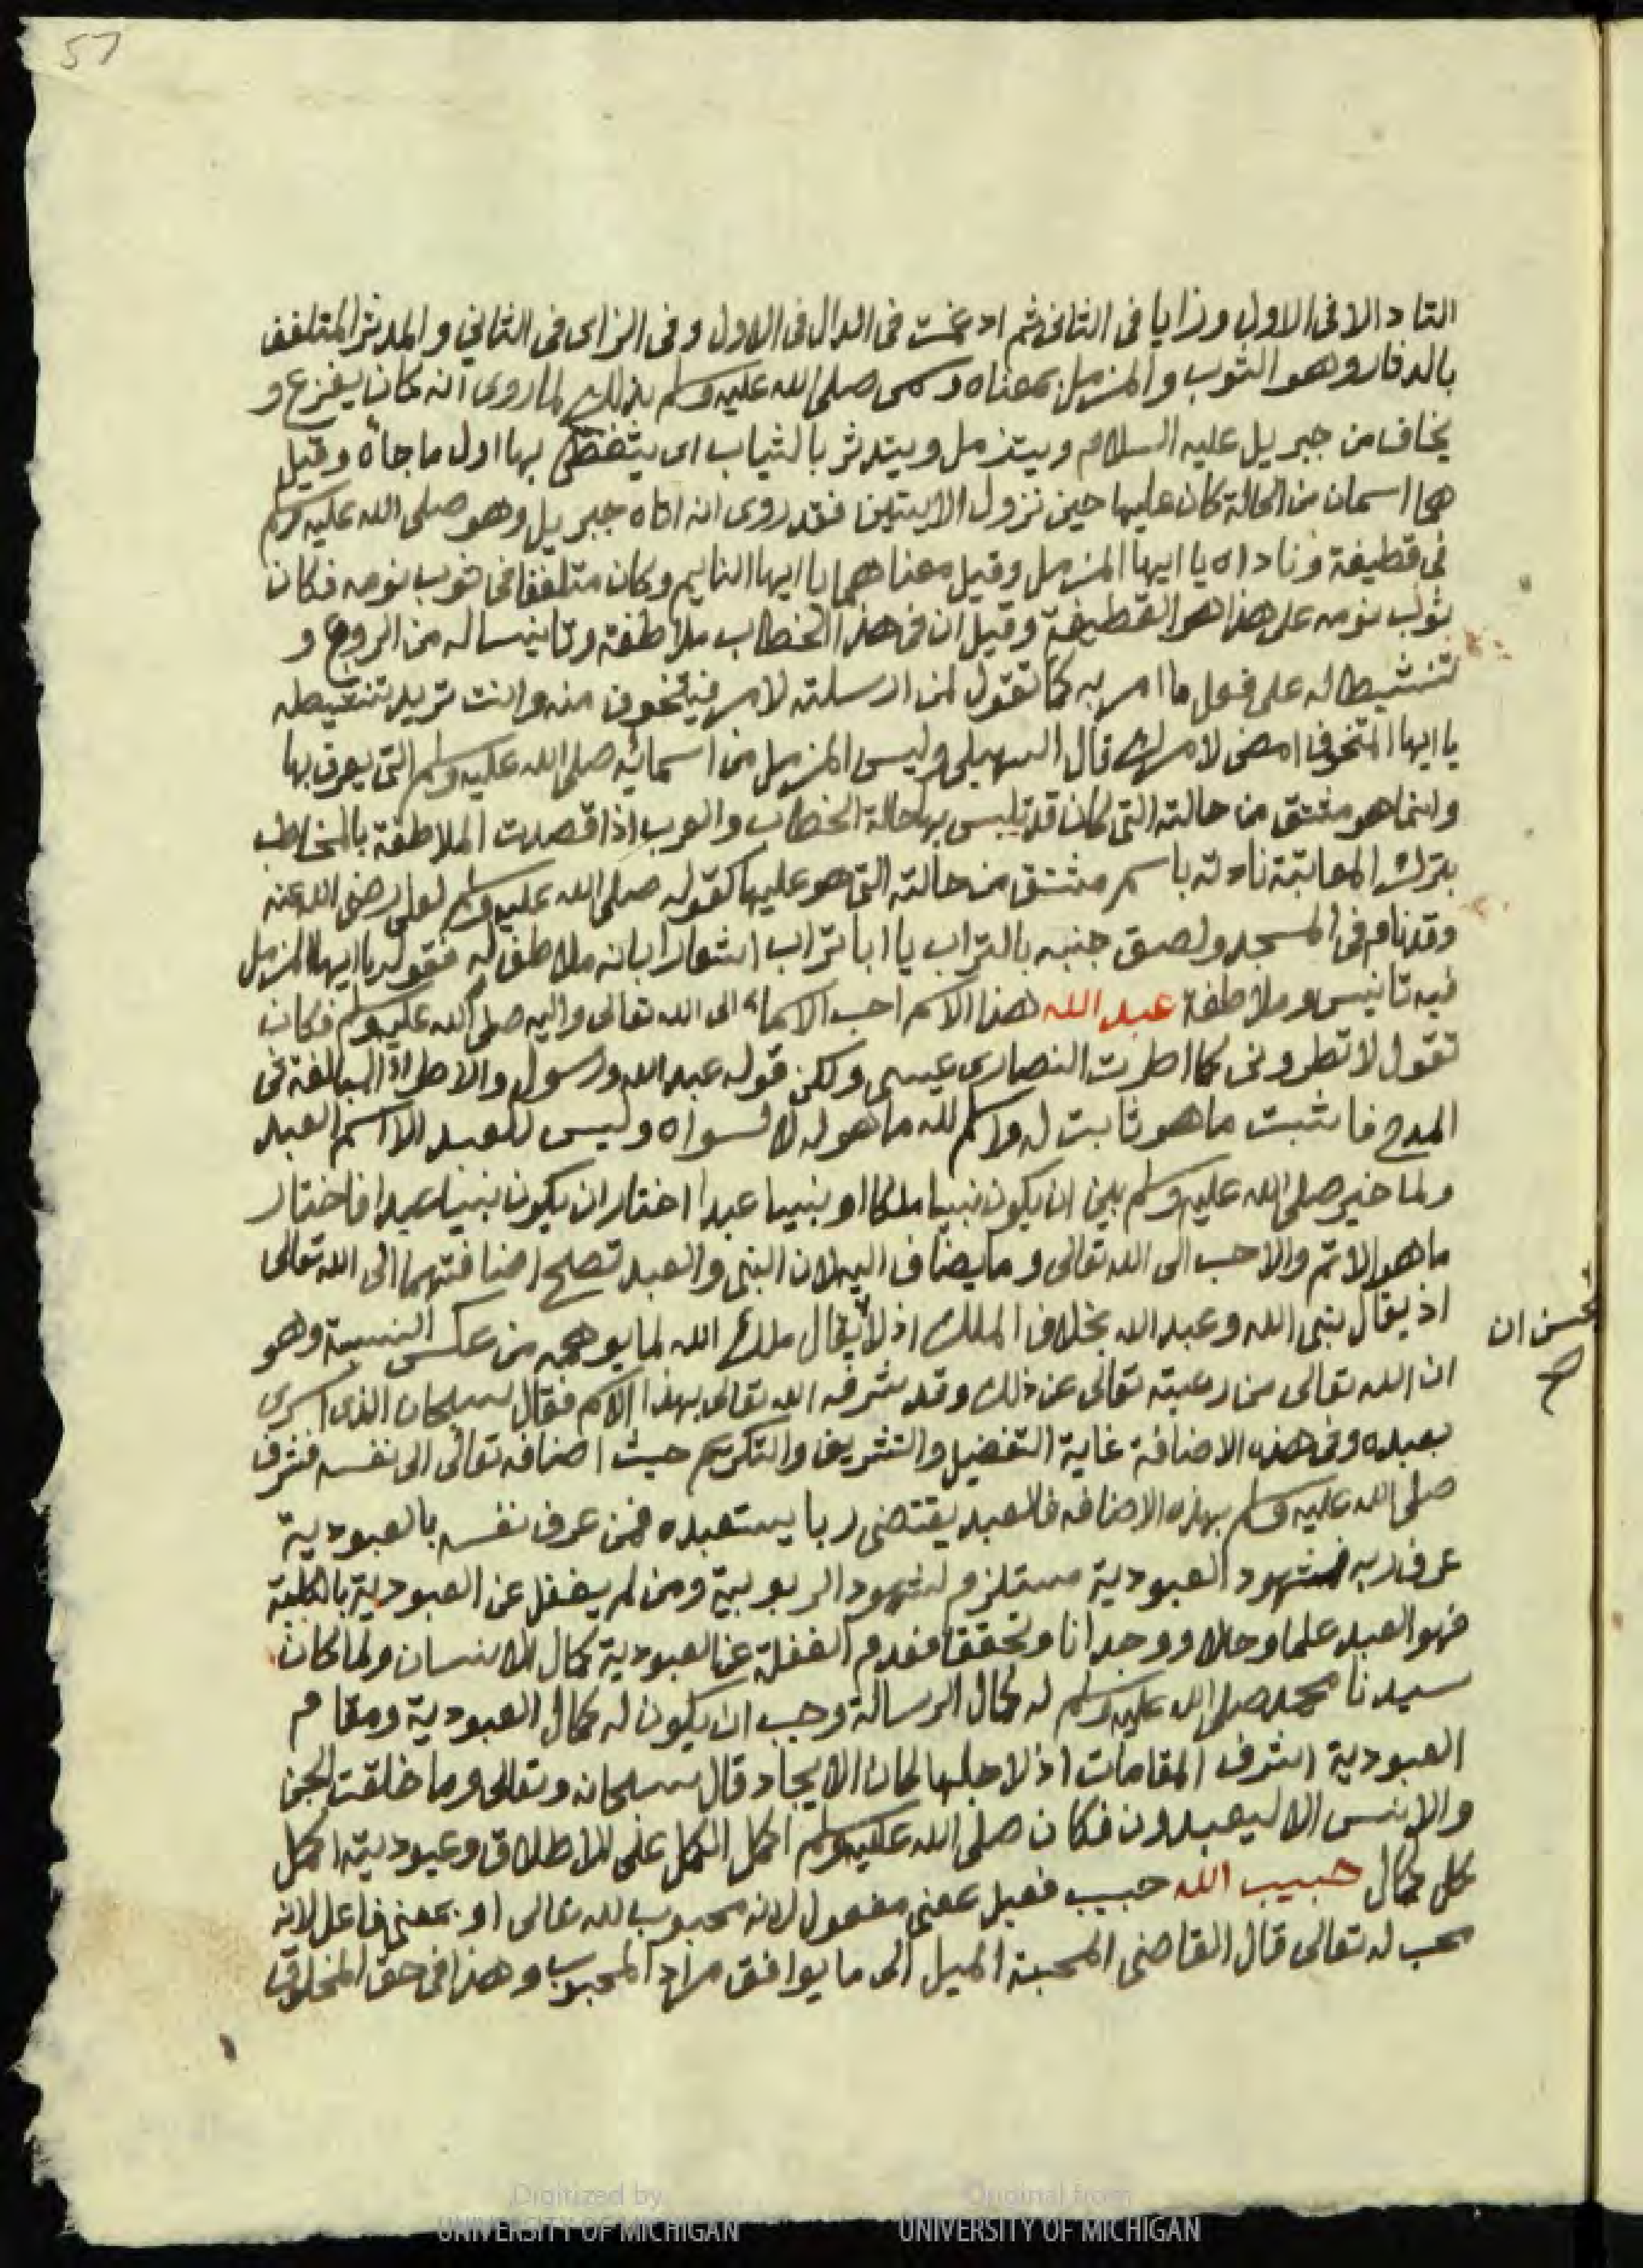 57
التا دالا فى الاول وزايا فى الثانى ثم ادغمت فى الدال فى الاول وفى الزاى فى الثاني والمدثر المتلفف
بالدفار وهو الثوب والمزمل بمعناه وسمى صلى الله عليه وسلم بذلك لما روى انه كان يفزع و
يخاف من جبريل عليه السلام ويتزمل ويتدثر بالثياب اى يتغطى بها اول ما جاه وقيل
هما اسمان من الحالة كان عليها حين نزول الايتين فقد روى انه اتاه جبريل وهو صلى الله عليه وسلم
فى قطيفة وناداه يا ايها المزمل وقيل معناهما يا ايها النايم وكان متلففا فى ثوب نومه فكان
ثوب نومه على هذا هو القطيفة وقيل ان فى هذا الخطاب ملاطفة وتانيسا له من الروع و
تنشيطا له على فعل ما امر به كما تقول لمن ارسلته لامر فيتخوف منه وانت تريد تنشيطه
يا ايها المتخوف امضى لامرك قال السهيلى وليس المزمل من اسمائه صلى الله عليه وسلم التى يعرف بها
وانما هو مشتق من حالته التى كان قد تلبس بها حالة الخطاب والعرب اذا قصدت الملاطفة بالمخاطب
بترك المعاتبة نادته باسم مشتق من حالته التى هو عليها كقوله صلى الله عليه وسلم لعلى رضى الله عنه
وقد نام فى المسجد ولصق جنبه بالتراب يا ابا تراب اشعارا بانه ملاطف له فقوله يا ايها المزمل
فيه تانيس وملاطفة عبد الله هذا الاسم احب الاسماء الى الله تعالى واليه صلى الله عليه وسلم فكان
تقول لا تطرونى كما اطرت النصارى عيسى ولكن قوله عبد الله ورسوله والاطراء المبالغة فى
المدح فاثبت ما هو ثابت له واسلم لله ما هو له لا لسواه وليس للعبد الا اسم العبد
ولما خير صلى الله عليه وسلم بين ان يكون نبيا ملكا او نبيا عبدا اختار ان يكون نبيا عبدا فاختار
ما هو الاتم والاحب الى الله تعالى وما يضاف اليه لان النبى والعبد تصلح اضافتهما الى الله تعالى
اذ يقال نبى الله وعبد الله بخلاف الملك اذ لا يقال ملك الله لما يوهمه من عكس النسبة وهو
يحسن ان
ان الله تعالى من رعيته تعالى عن ذلك وقد شرفه الله تعالى بهذا الاسم فقال سبحان الذى اسرى
بعبده وفى هذه الاضافة غاية التفضيل والتشريف والتكريم حيث اضافه تعالى الى نفسه فشرف
صلى الله عليه وسلم بهذه الاضافه فالعبد يقتضى ربا يستعبده فمن عرف نفسه بالعبودية
عرف ربه فشهود العبودية مستلزم لشهود الربوبية ومن لم يغفل عن العبودية بالكلية
فهو العبد علما وحالا ووجدانا وتحققا فعدم الغفلة عن العبودية كمال الانسان ولما كان
سيدنا محمد صلى الله عليه وسلم له كمال الرسالة وجب ان يكون له كمال العبودية ومقام
العبودية اشرف المقامات اذ لاجلها كان الايجاد قال سبحانه وتعالى وما خلقت الجن
والانس الا ليعبدون فكان صلى الله عليه وسلم اكمل الكمل على الاطلاق وعبوديته اكمل
كل كمال حبيب الله حبيب فعيل بمعنى مفعول لانه محبوب لله تعالى او بمعنى فاعل لانه
محب له تعالى قال القاضى المحبة الميل الى ما يوافق مراد المحبوب وهذا فى حق المخلوق
Digitized by
UNIVERSITY OF MICHIGAN
Original from
UNIVERSITY OF MICHIGAN